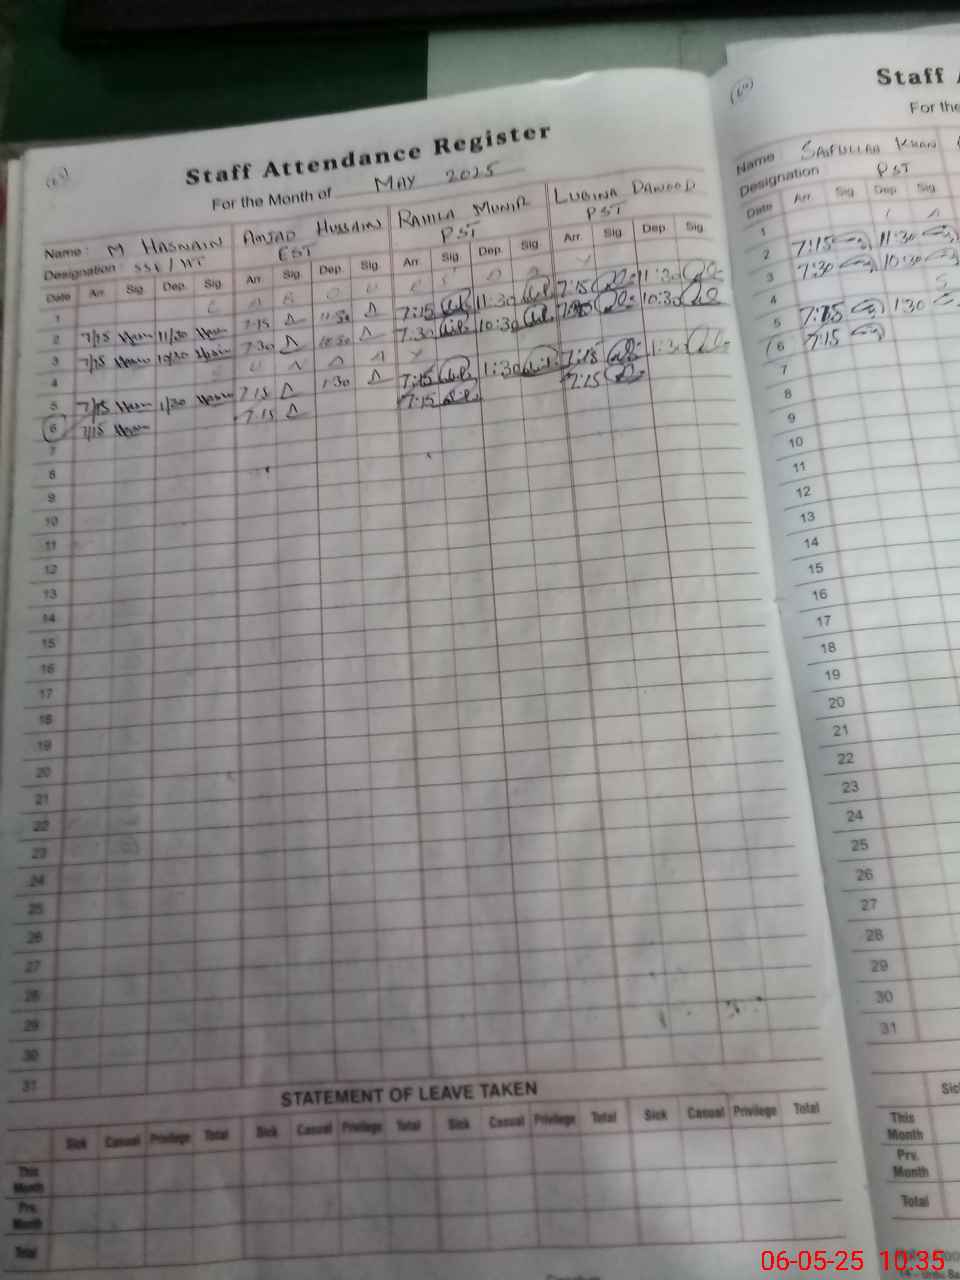 Staff Attendance Register
For the Month of MAY 2025
Name: M HASNAIN AMJAD HUSSAIN RAHILA MUNIR LUBINA DAWOOD
Designation: SST/HT EST PST PST
Date Arr. Sig. Dep. Sig. Arr. Sig. Dep. Sig. Arr. Sig. Dep. Sig. Arr. Sig. Dep. Sig.
1
2 7/15 11/30 7:15 11:30 7:15 11:30 7:15 11:30
3 7/15 10/30 7:30 10:30 7:30 10:30 10:30
4
5 7/15 1/30 7:15 1:30 7:15 1:30 7:15 1:30
6 7/15 7:15 7:15 7:15
7
8
9
10
11
12
13
14
15
16
17
18
19
20
21
22
23
24
25
26
27
28
29
30
31
STATEMENT OF LEAVE TAKEN
Sick Casual Privilege Total Sick Casual Privilege Total Sick Casual Privilege Total Sick Casual Privilege Total
This Month
Prv. Month
Total
Staff
For the
Name: SAIFULLAH KHAN
Designation PST
Date Arr. Sig. Dep. Sig.
1
2 7:15 11:30
3 7:30 10:30
4
5 7:15 1:30
6 7:15
7
8
9
10
11
12
13
14
15
16
17
18
19
20
21
22
23
24
25
26
27
28
29
30
31
This Month
Prv. Month
Total
06-05-25 10:35